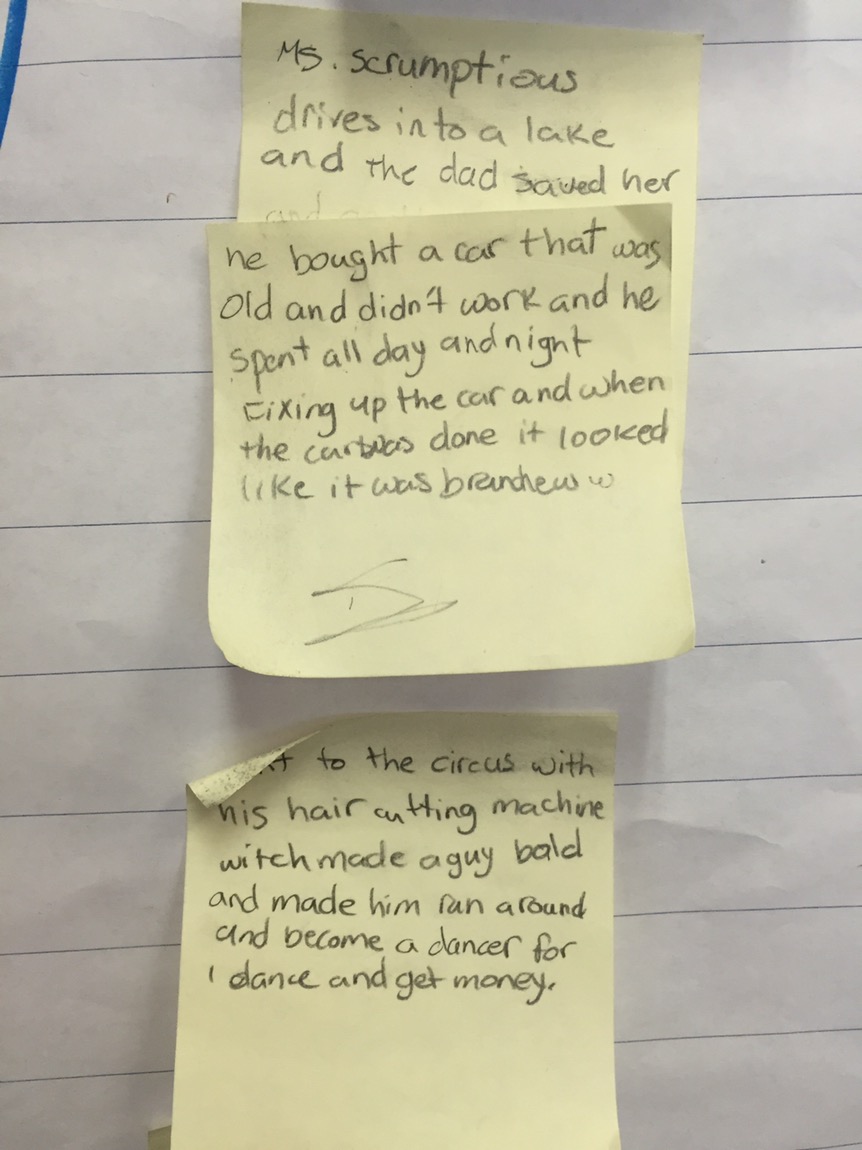 Ms. scrumptious
drives into a lake
and the dad saved her
and
he bought a car that was
old and didn't work and he
spent all day and night
fixing up the car and when
the car was done it looked
like it was brandnew w
to the circus with
his hair cutting machine
witch made a guy bald
and made him run around
and become a dancer for
1 dance and get money.